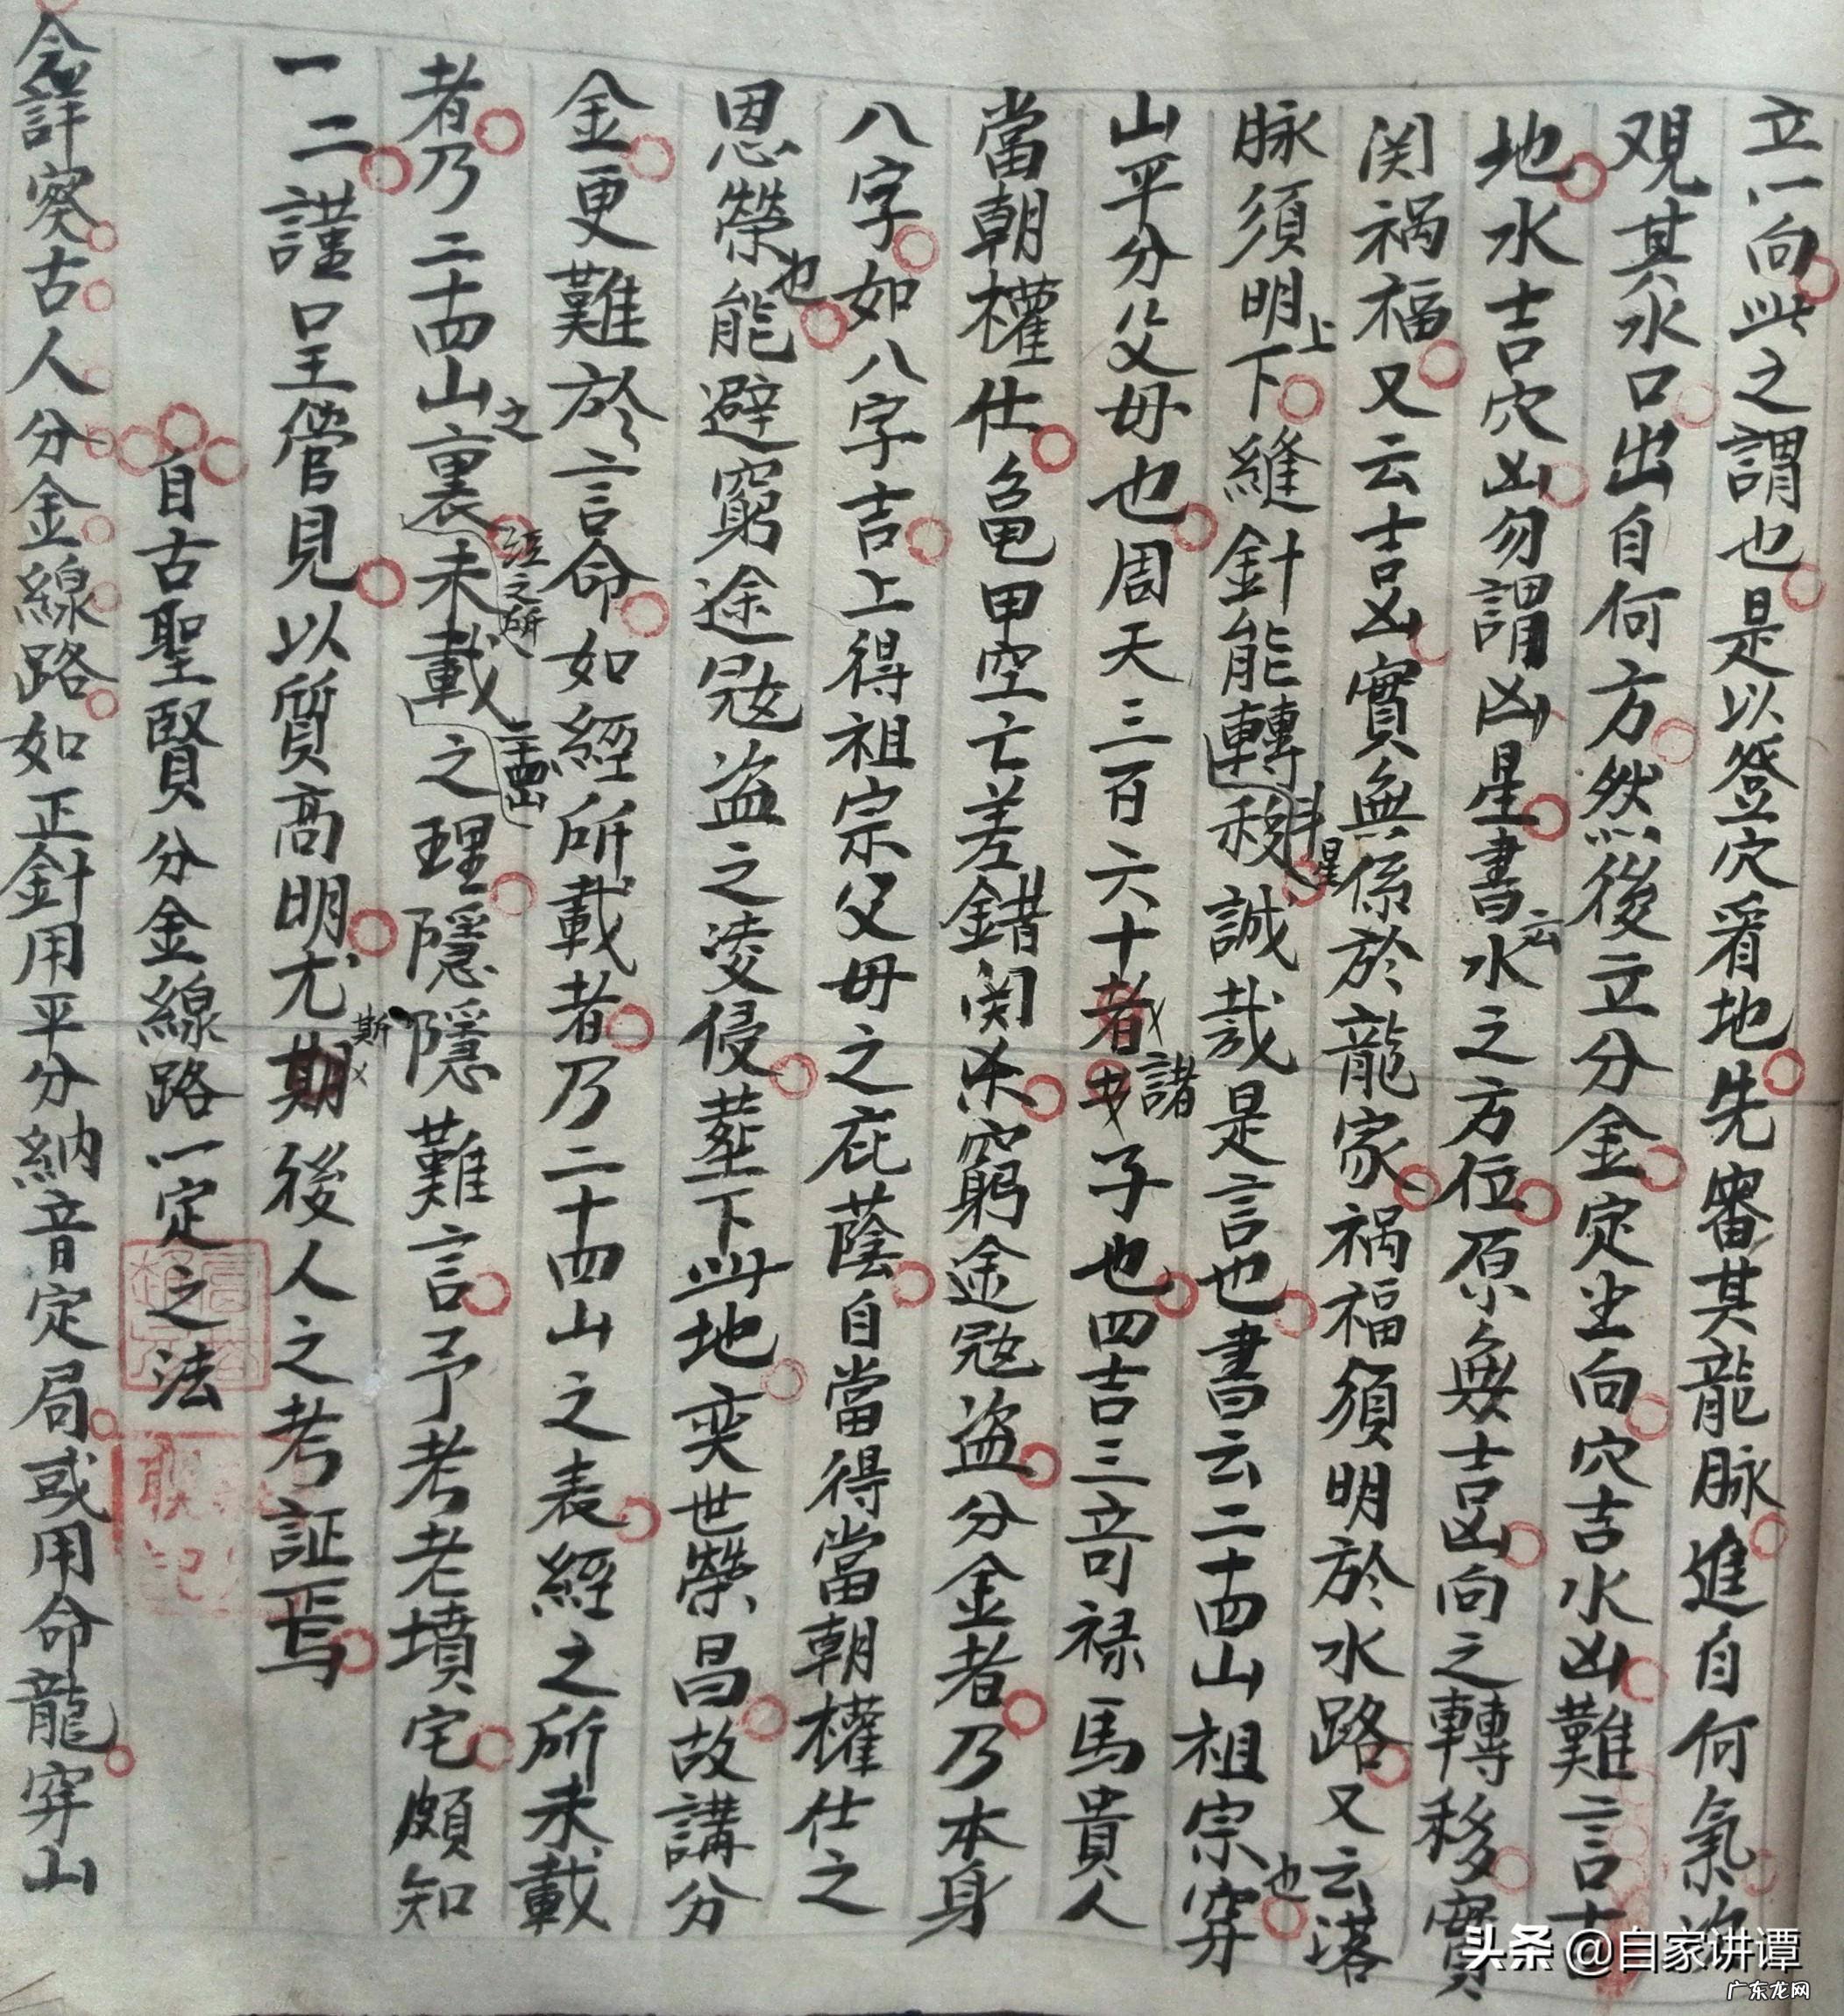 立一向此之謂也是以登穴看地先審其龍脉進自何氣
观其水口出自何方然後立分金定坐向穴吉水凶難言吉
地水吉穴凶勿謂凶星書云水之方位原無吉凶向之轉移實
関祸福又云吉凶實無係於龍家祸福須明於水路又云落
脉須明上下縫針能轉移斗星誠哉是言也書云二十四山祖宗也穿
山平分父毋也周天三百六十者諸子也四吉三竒禄馬貴人
當朝權仕亀甲空亡差錯関杀窮途冦盗分金者乃本身
八字如八字吉上得祖宗父毋之庇蔭自當得當朝權仕之
恩榮也能避窮途冦盗之凌侵塟下此地奕世榮昌故講分
金更難於言命如經所載者乃二十四山之表經之所未載
者乃二十四山之裏經之所未載二十四山之理隱隱難言予考老墳宅頗知
一二謹呈管見以質高明尤期斯後人之考証焉
自古聖賢分金線路一定之法
今詳察古人分金線路如正針用平分納音定局或用命龍穿山
头条 @自家讲谭
广东龙网